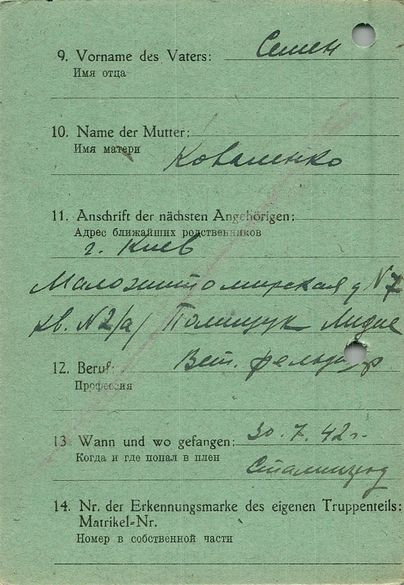 9. Vorname des Vaters: Семен
Имя отца
10. Name der Mutter:
Имя матери
Коваленко
11. Anschrift der nächsten Angehörigen:
Адрес ближайших родственников
г. Киев
Маложитомирская д N7
кв. N2/а/ Полищук Лидие
12. Beruf: Вет. фельдшер
Профессия
13 Wann und wo gefangen: 30.7.42г.
Когда и где попал в плен
Сталинград
14. Nr. der Erkennungsmarke des eigenen Truppenteils:
Matrikel-Nr.
Номер в собственной части